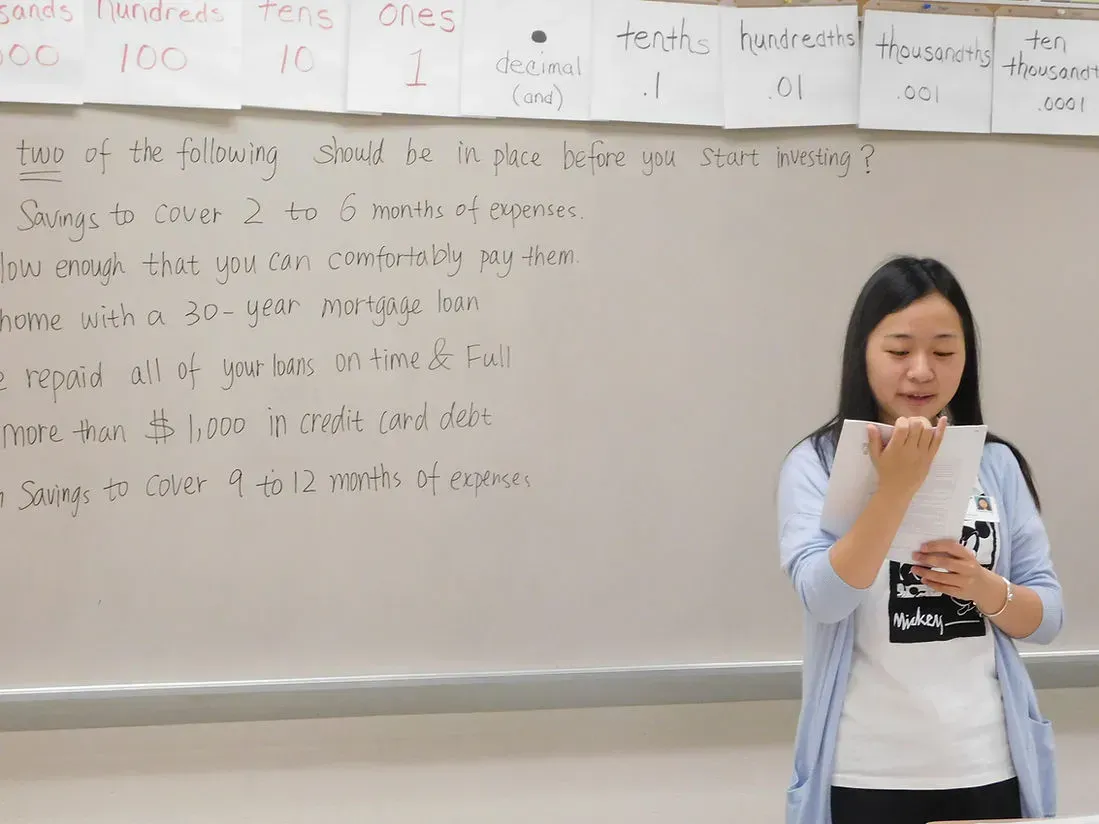 hundreds
100
tens
10
ones
1
decimal
(and)
tenths
.1
hundredths
.01
thousandths
.001
ten
.0001
two of the following should be in place before you start investing?
Savings to cover 2 to 6 months of expenses.
low enough that you can comfortably pay them.
home with a 30-year mortgage loan
repaid all of your loans on time & Full
more than $1,000 in credit card debt
Savings to cover 9 to 12 months of expenses
Mickey